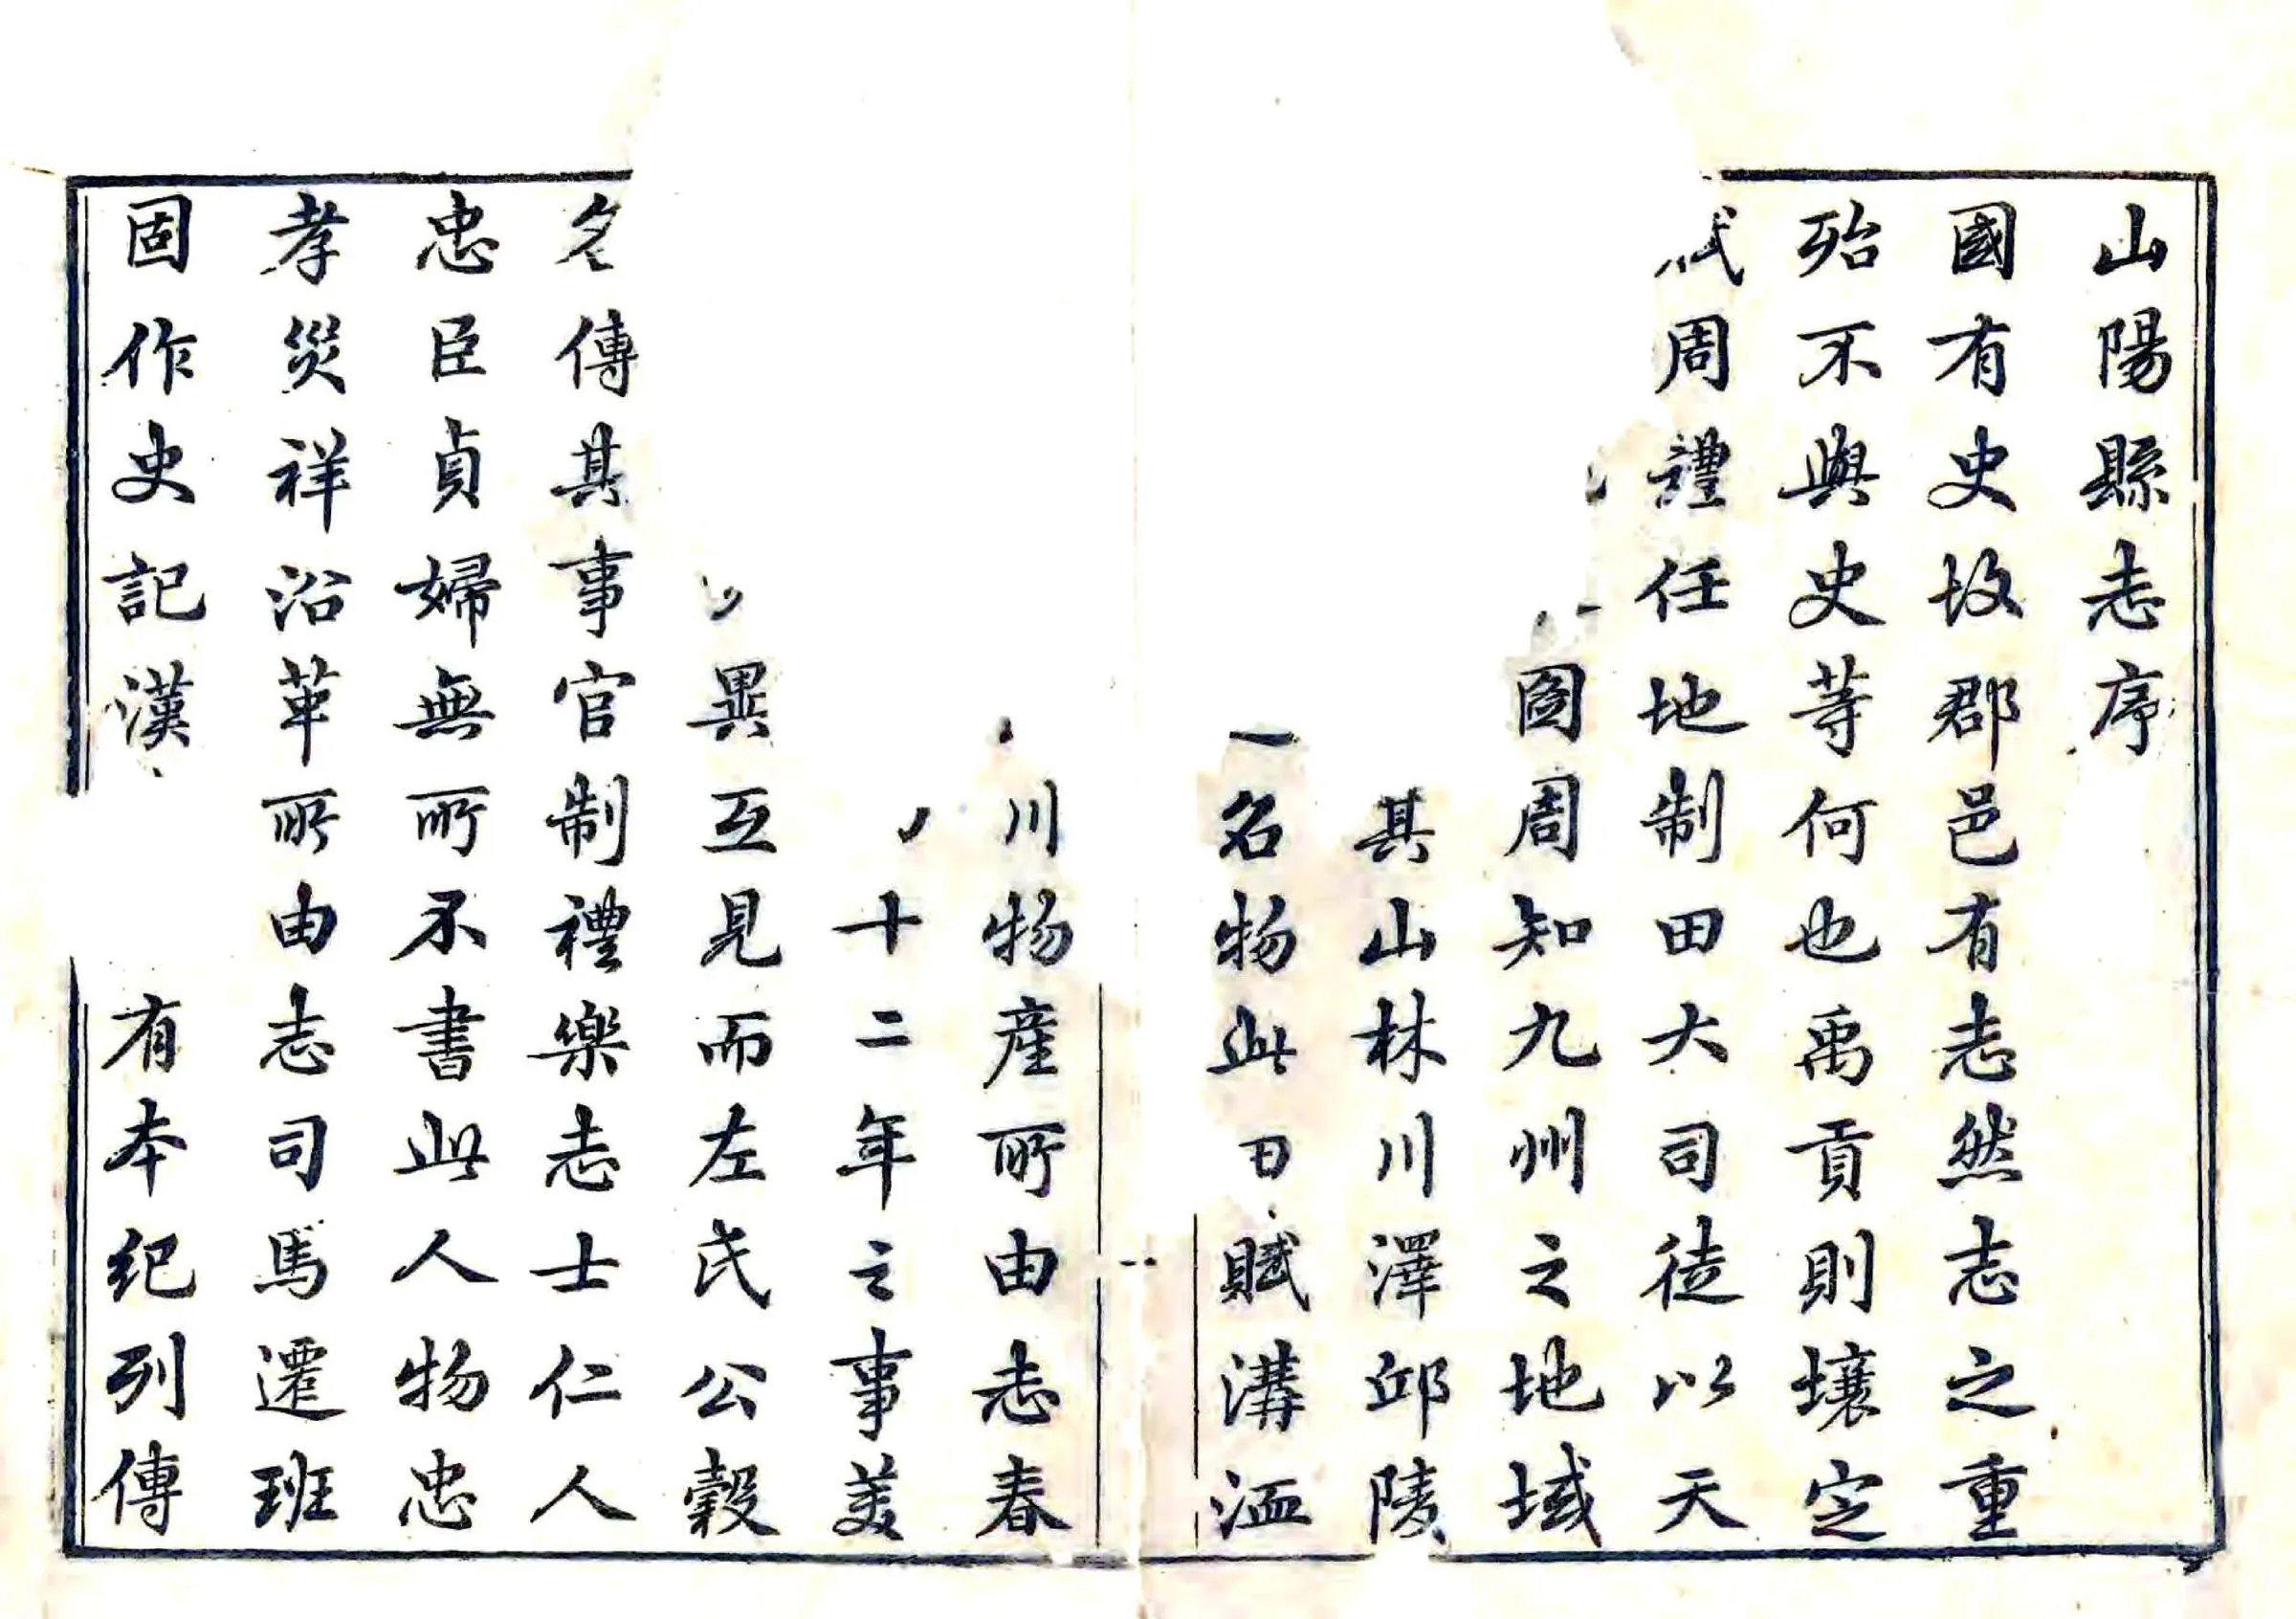 山陽縣志序
國有史故郡邑有志然志之重
殆不與史等何也禹貢則壤定
賦周禮任地制田大司徒以天
圖周知九州之地域
其山林川澤邱陵
名物此賦溝洫
川物產所由志春
十二年之事美
異互見而左氏公穀
名傳其事官制禮樂志士仁人
忠臣貞婦無所不書此人物忠
孝災祥沿革所由志司馬遷班
固作史記漢有本紀列傳